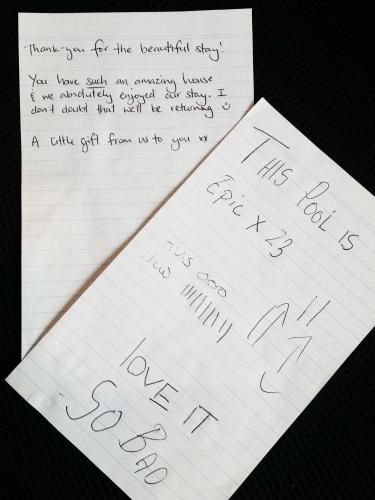 Thank-you for the beautiful stay!
You have such an amazing house
& we absolutely enjoyed our stay. I
don't doubt that we'll be returning ☺
A little gift from us to you xx
THIS POOL IS
Epic x 23
LOVE IT
- SO BAD